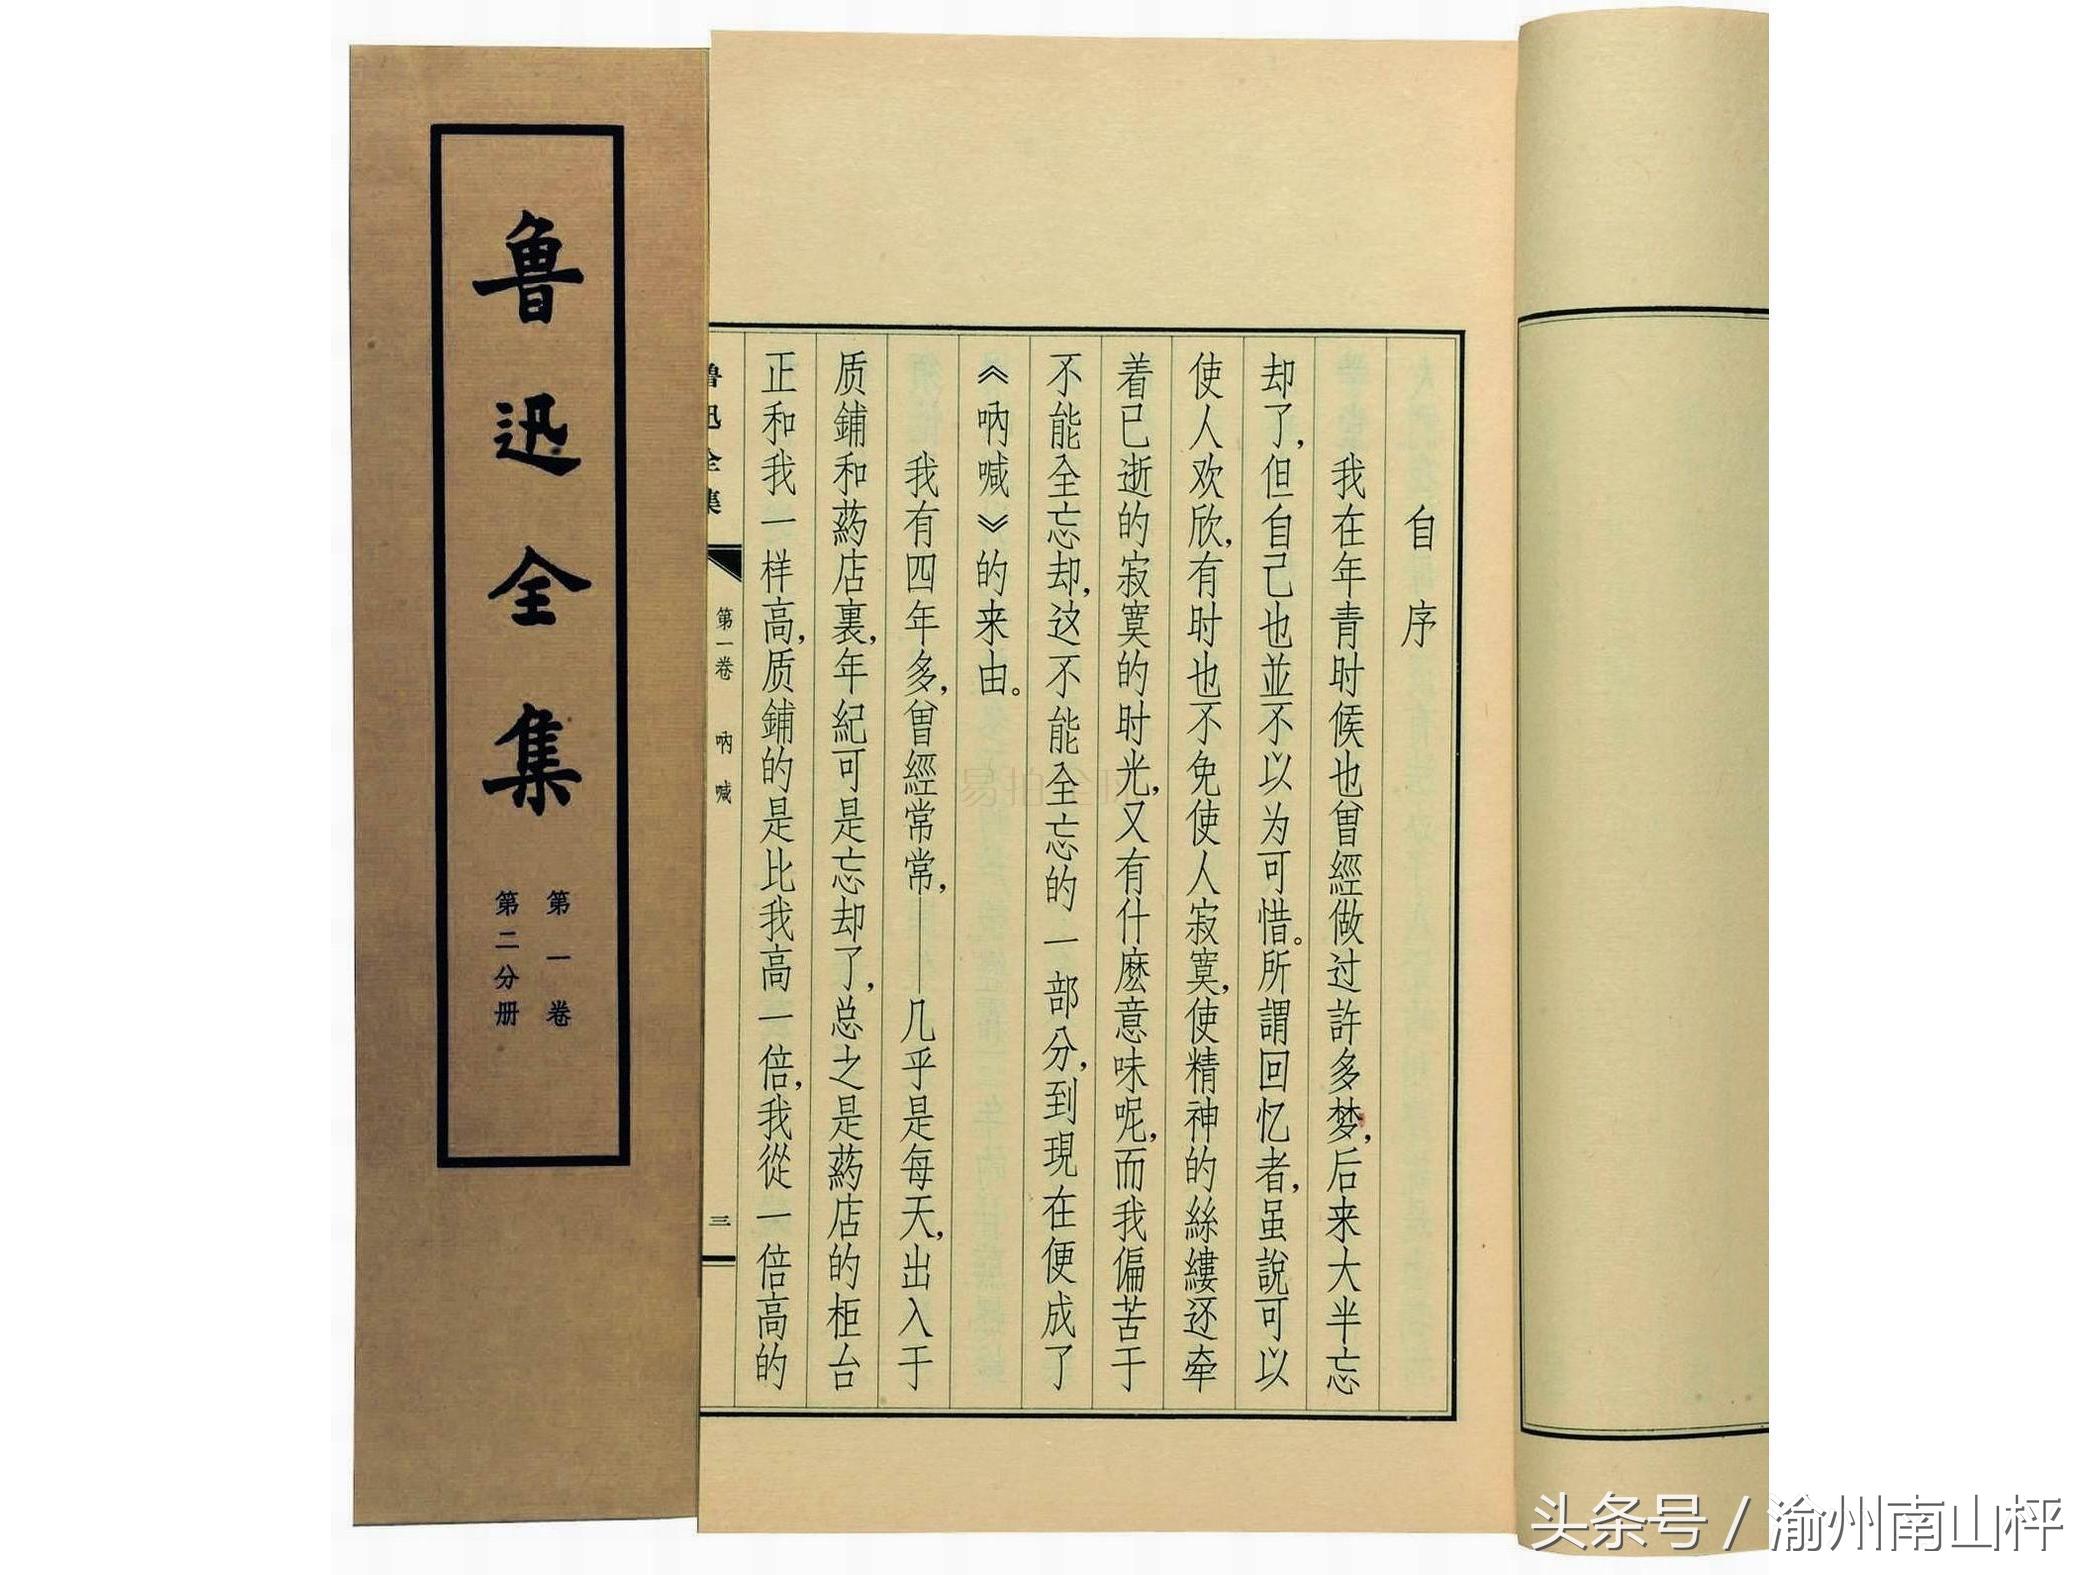 鲁迅全集
第一卷
第二分册
自序
我在年青时候也曾經做过許多梦，后来大半忘
却了，但自己也並不以为可惜。所謂回忆者，虽說可以
使人欢欣，有时也不免使人寂寞，使精神的絲縷还牵
着已逝的寂寞的时光，又有什麽意味呢，而我偏苦于
不能全忘却，这不能全忘的一部分，到現在便成了
《吶喊》的来由。
我有四年多，曾經常常，——几乎是每天，出入于
质鋪和葯店裏，年紀可是忘却了，总之是葯店的柜台
正和我一样高，质鋪的是比我高一倍，我從一倍高的
鲁迅全集
第一卷 吶喊
三
易拍全
头条号 / 渝州南山枰